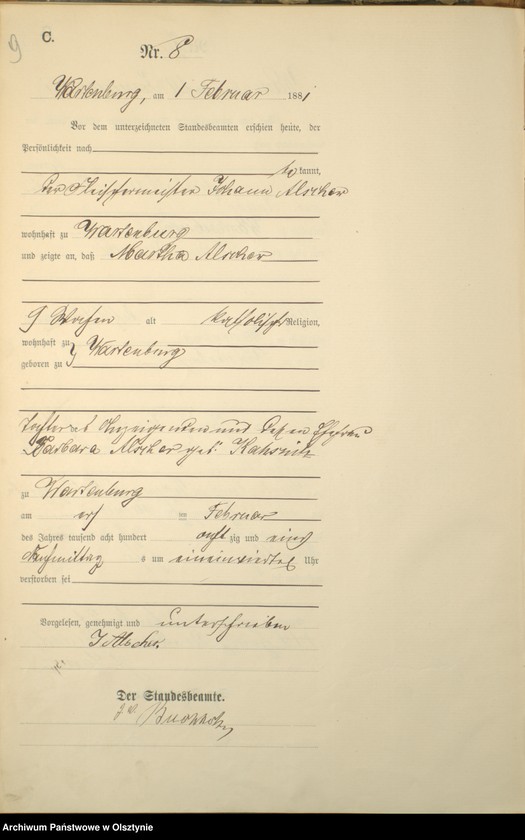 9
C.
Nr. 8
Wartenburg, am 1 Februar 1881
Vor dem unterzeichneten Standesbeamten erschien heute, der
Persönlichkeit nach
be kannt,
der Fleischermeister Johann Alscher
wohnhaft zu Wartenburg
und zeigte an, daß Martha Alscher
9 Wochen alt katholischer Religion,
wohnhaft zu Wartenburg
geboren zu
Tochter des Anzeigenden und dessen Ehefrau
Barbara Alscher geb.
zu Wartenburg
am Februar
des Jahres tausend acht hundert acht zig und eins
Nachmittag s um Uhr
verstorben sei
Vorgelesen, genehmigt und unterschrieben
J Alscher.
Der Standesbeamte.
Archiwum Państwowe w Olsztynie